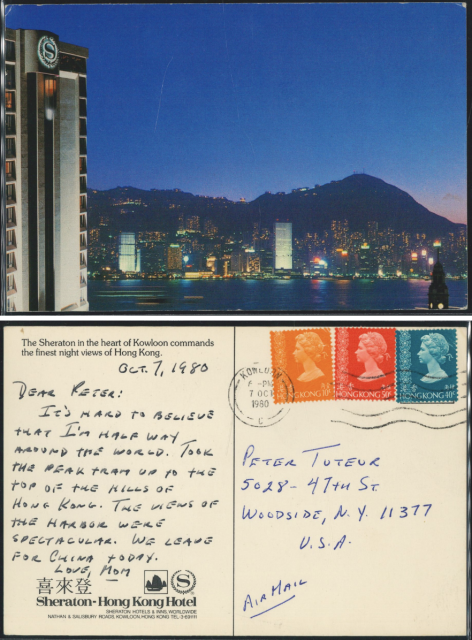 S
The Sheraton in the heart of Kowloon commands
the finest night views of Hong Kong.
OCT. 7, 1980
DEAR PETER:
IT'S HARD TO BELIEVE
THAT I'M HALF WAY
AROUND THE WORLD. TOOK
THE PEAK TRAM UP TO THE
TOP OF THE HILLS OF
HONG KONG. THE VIEWS OF
THE HARBOR WERE
SPECTACULAR. WE LEAVE
FOR CHINA TODAY.
LOVE, MOM
喜來登
S
Sheraton-Hong Kong Hotel
SHERATON HOTELS & INNS, WORLDWIDE
NATHAN & SALISBURY ROADS, KOWLOON, HONG KONG TEL: 3-691111
KOWLOON
6-PM
7 OCT
1980
C
HONG KONG 10¢
HONG KONG 50¢
HONG KONG 40¢
PETER TUTEUR
5028-47TH ST.
WOODSIDE, N.Y. 11377
U.S.A.
AIR MAIL